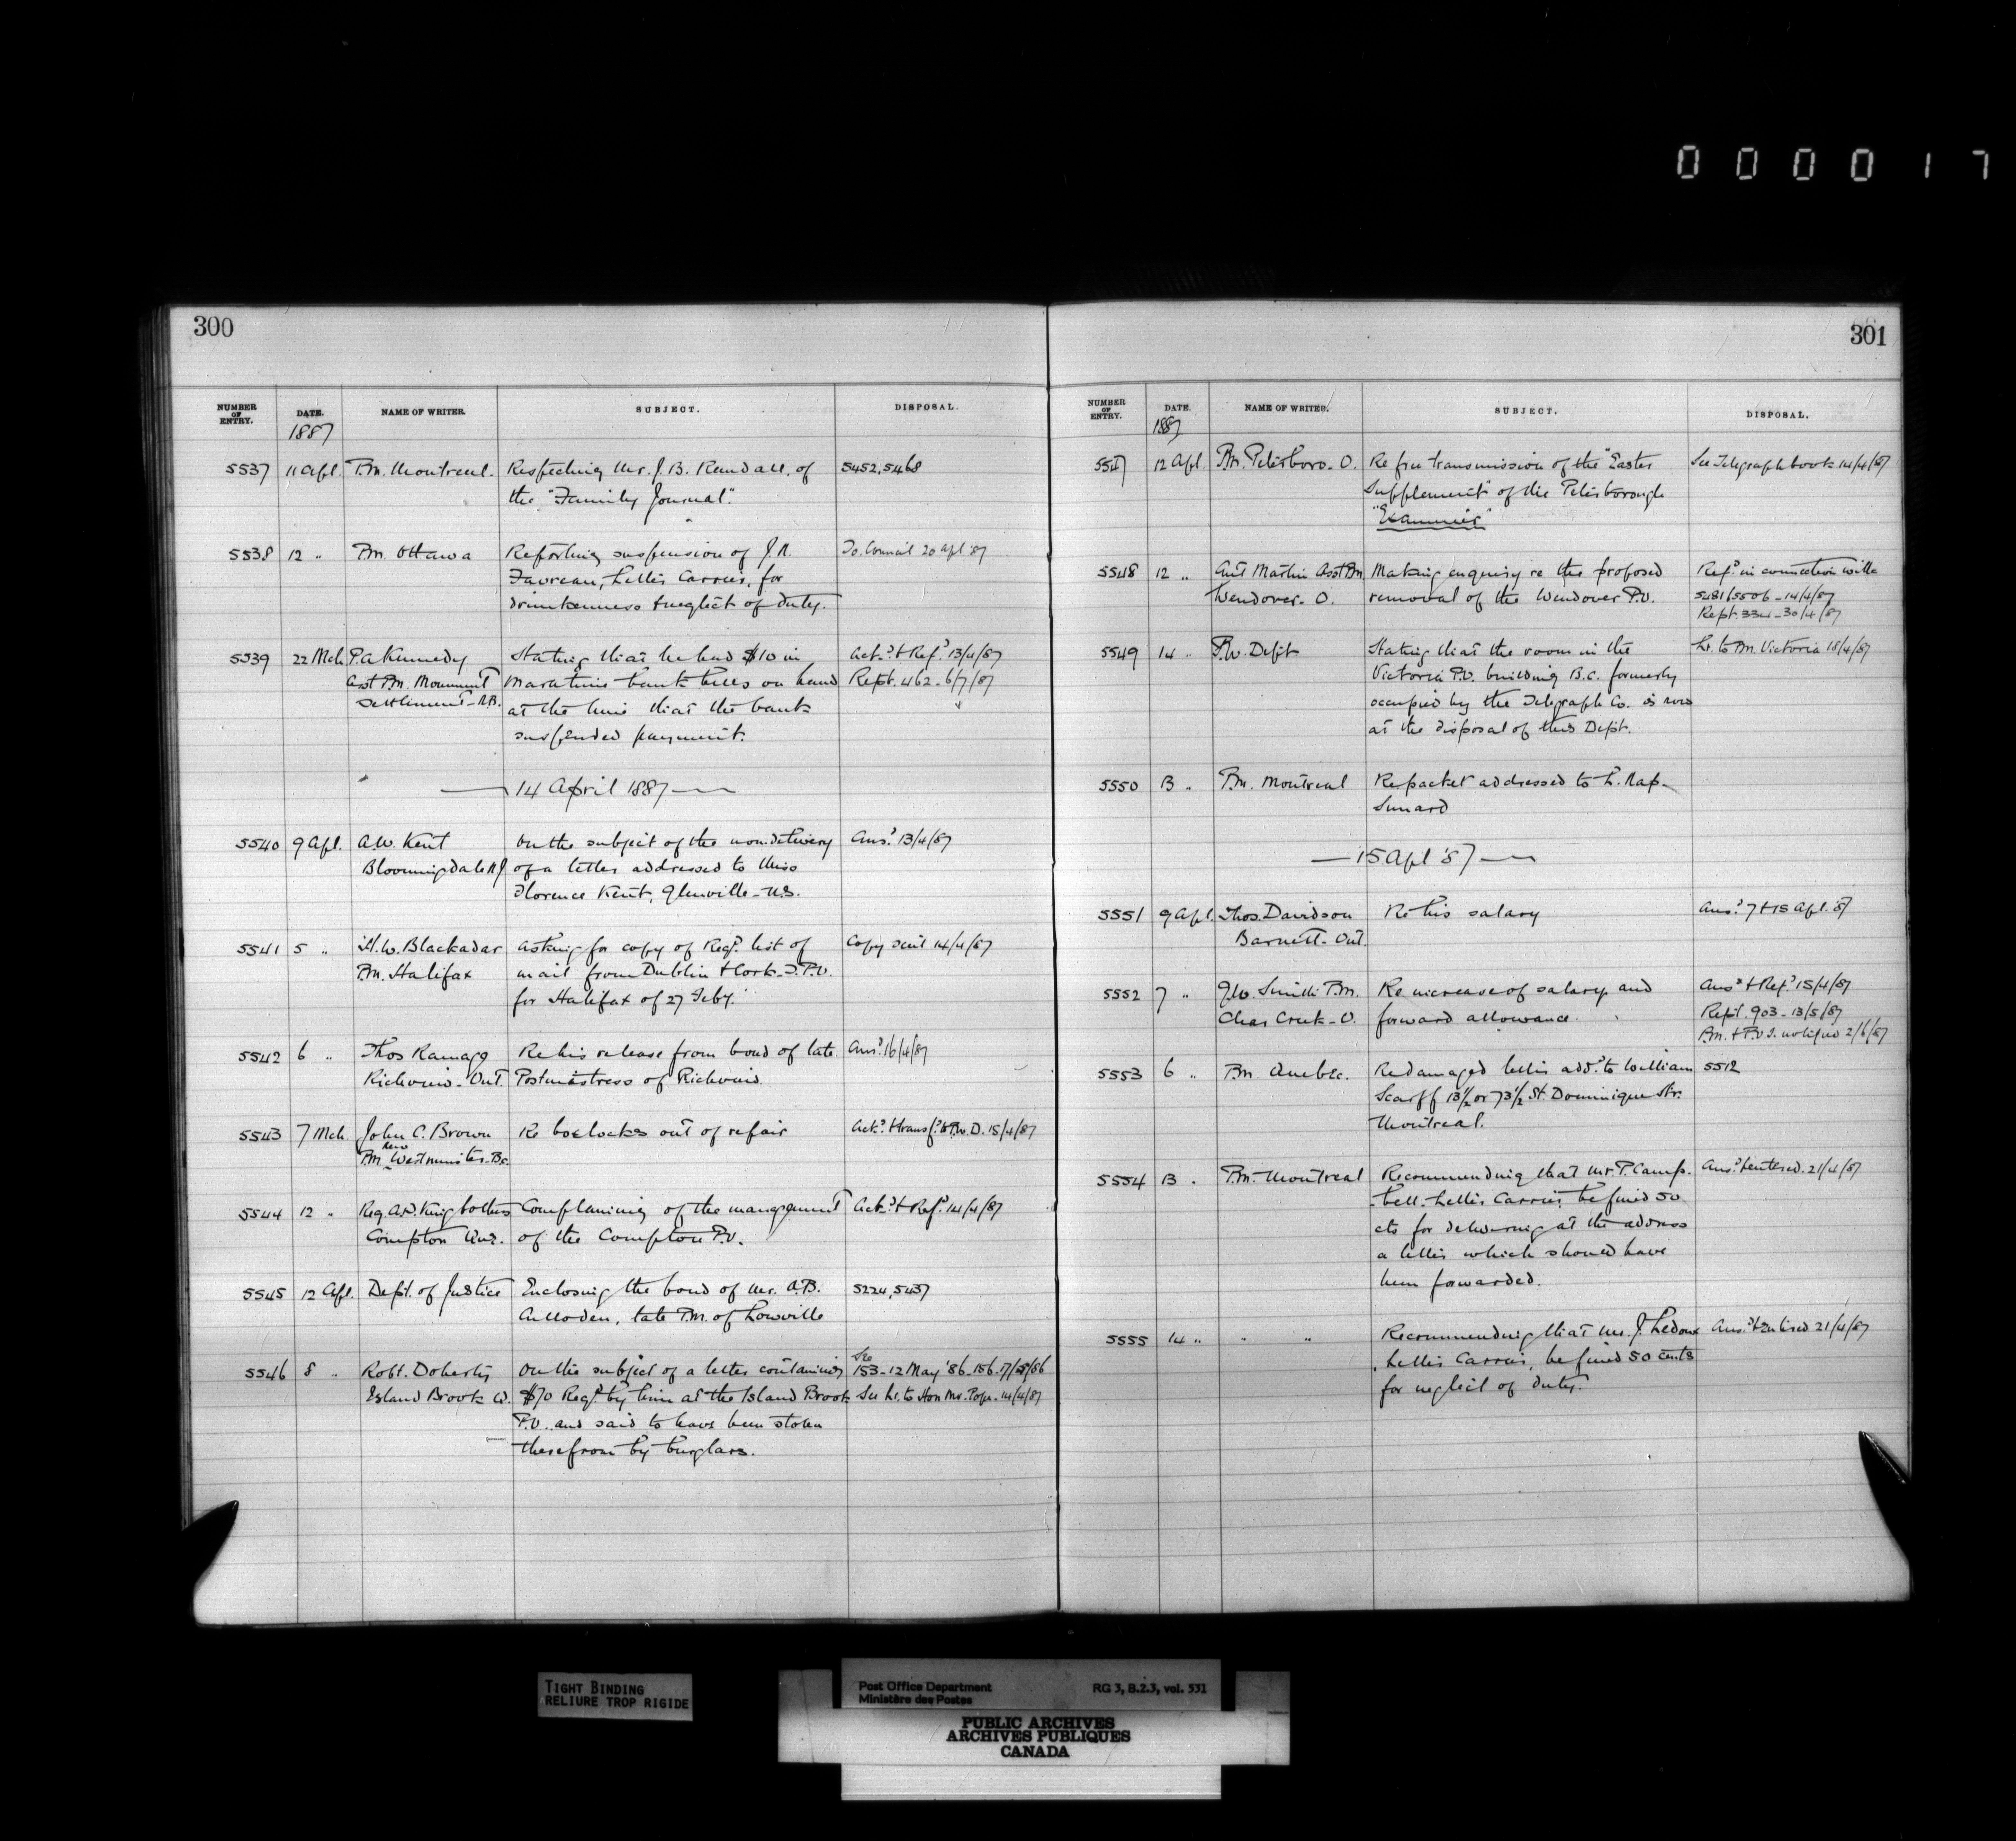 0 0 0 0 1 7
300
NUMBER OF ENTRY. DATE. NAME OF WRITER. SUBJECT. DISPOSAL.
1887
5537 11 Apl. P.M. Montreal. Respecting Mr. J. B. Kendall, of 5452, 5468
the "Family Journal".
5538 12 " P.M. Ottawa Reporting suspension of J. R. To Council 20 Apl '87
Favreau, Letter Carrier, for
drunkenness & neglect of duty.
5539 22 Mch P. A. Kennedy Stating that he had $10 in Ack.d & Ref.d 13/4/87
Asst P.M. Monument Maratime bank bills on hand Rept. 462 - 6/7/87
Settlement - N.B. at the time that the bank
suspended payment.
14 April 1887
5540 9 Apl. A. W. Kent On the subject of the non-delivery Ans.d 13/4/87
Bloomingdale N J of a letter addressed to Miss
Florence Kent, Glenville - N.S.
5541 5 " H. W. Blackadar Asking for copy of Reg.d list of Copy sent 14/4/87
P.M. Halifax mail from Dublin & Cork T.P.O.
for Halifax of 27 Feby.
5542 6 " Thos Ramage Re his release from bond of late Ans.d 16/4/87
Richview - Ont. Postmistress of Richview
5543 7 Mch John C. Brown Re box locks out of repair Ack.d & transf.d to P.W.D. 15/4/87
P.M. New Westminster - B.C.
5544 12 " Complaining of the management Ack.d & Ref.d 14/4/87
Compton Que. of the Compton P.O.
5545 12 Apl. Dept. of Justice Enclosing the bond of Mr. A. B. 5224, 5437
Culloden, late P.M. of Lowville
5546 8 " Robt. Doherty On the subject of a letter containing See 153 - 12 May '86 - 156 - 17/5/86
Island Brook Q. $70 Reg.d by him at the Island Brook See Lr. to Hon Mr. Pope - 14/4/87
P.O. and said to have been stolen
therefrom by burglars.
301
NUMBER OF ENTRY. DATE. NAME OF WRITER. SUBJECT. DISPOSAL.
1887
5547 12 Apl. P.M. Peterboro - O. Re free transmission of the "Easter See Telegraph book 14/4/87
Supplement" of the Peterborough
"Examiner"
5548 12 " Ant Martin Asst P.M. Making enquiry re the proposed Ref.d in connection with
Wendover - O. removal of the Wendover P.O. 5481/5506 - 14/4/87
Rept. 334 - 30/4/87
5549 14 " P.W. Dept Stating that the room in the Lr. to P.M. Victoria 18/4/87
Victoria P.O. building B.C. formerly
occupied by the Telegraph Co. is now
at the disposal of this Dept.
5550 13 " P.M. Montreal Re packet addressed to L. Rap-
Sunard
15 Apl '87
5551 9 Apl. Thos. Davidson Re his salary Ans.d 7 & 15 Apl. '87
Barnett - Ont.
5552 7 " J. W. Smith P.M. Re increase of salary and Ans.d & Ref.d 15/4/87
Clear Creek - O. forward allowance. Rept. 903 - 13/5/87
P.M. & P.O.I. notified 2/6/87
5553 6 " P.M. Quebec. Re damaged letter add.d to William 5512
Scarff 13½ or 73½ St. Dominique Str.
Montreal.
5554 13 " P.M. Montreal Recommending that Mr. P. Camp- Ans.d & entered. 21/4/87
bell - Letter Carrier, be fined 50
cts for delivering at the address
a letter which should have
been forwarded.
5555 14 " " " Recommending that Mr. J. Ledoux Ans.d & Entered 21/4/87
Letter Carrier, be fined 50 cents
for neglect of duty.
TIGHT BINDING
RELIURE TROP RIGIDE
Post Office Department RG 3, B.2.3, vol. 531
Ministère des Postes
PUBLIC ARCHIVES
ARCHIVES PUBLIQUES
CANADA